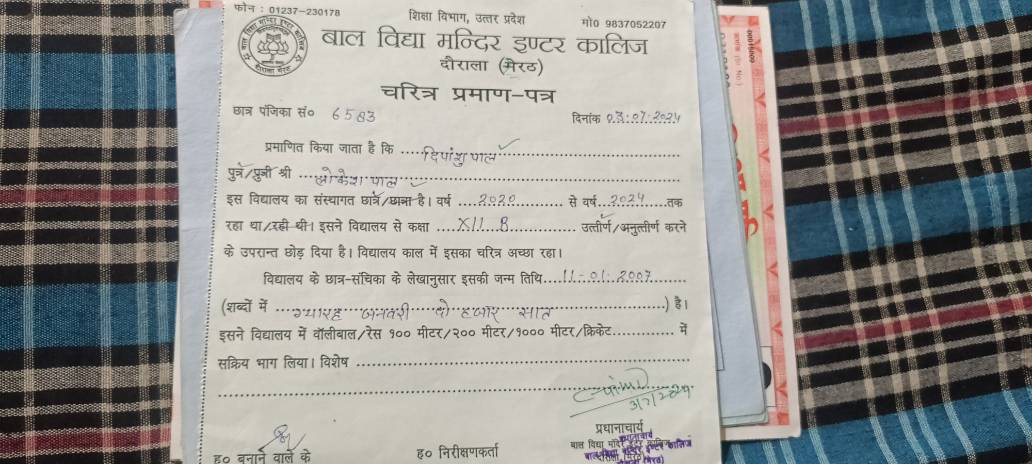 फोन : 01237-230178
शिक्षा विभाग, उत्तर प्रदेश
मो० 9837052207
बाल विद्या मन्दिर इण्टर कालिज
दौराला (मेरठ)
चरित्र प्रमाण-पत्र
छात्र पंजिका सं० 6583
दिनांक 03.07.2024
प्रमाणित किया जाता है कि दिपांशु पाल
पुत्र/पुत्री श्री लोकेश पाल
इस विद्यालय का संस्थागत छात्र/छात्रा है। वर्ष 2020 से वर्ष 2024 तक
रहा था/रही थी। इसने विद्यालय से कक्षा XII B उत्तीर्ण/अनुत्तीर्ण करने
के उपरान्त छोड़ दिया है। विद्यालय काल में इसका चरित्र अच्छा रहा।
विद्यालय के छात्र-संचिका के लेखानुसार इसकी जन्म तिथि 11-01-2007
(शब्दों में ग्यारह जनवरी दो हजार सात) है।
इसने विद्यालय में वॉलीबाल/रेस १०० मीटर/२०० मीटर/१००० मीटर/क्रिकेट में
सक्रिय भाग लिया। विशेष
3/7/2024
प्रधानाचार्य
बाल विद्या
ह० बनाने वाले के
ह० निरीक्षणकर्ता
प्रधानाचार्य
इण्टर कालिज